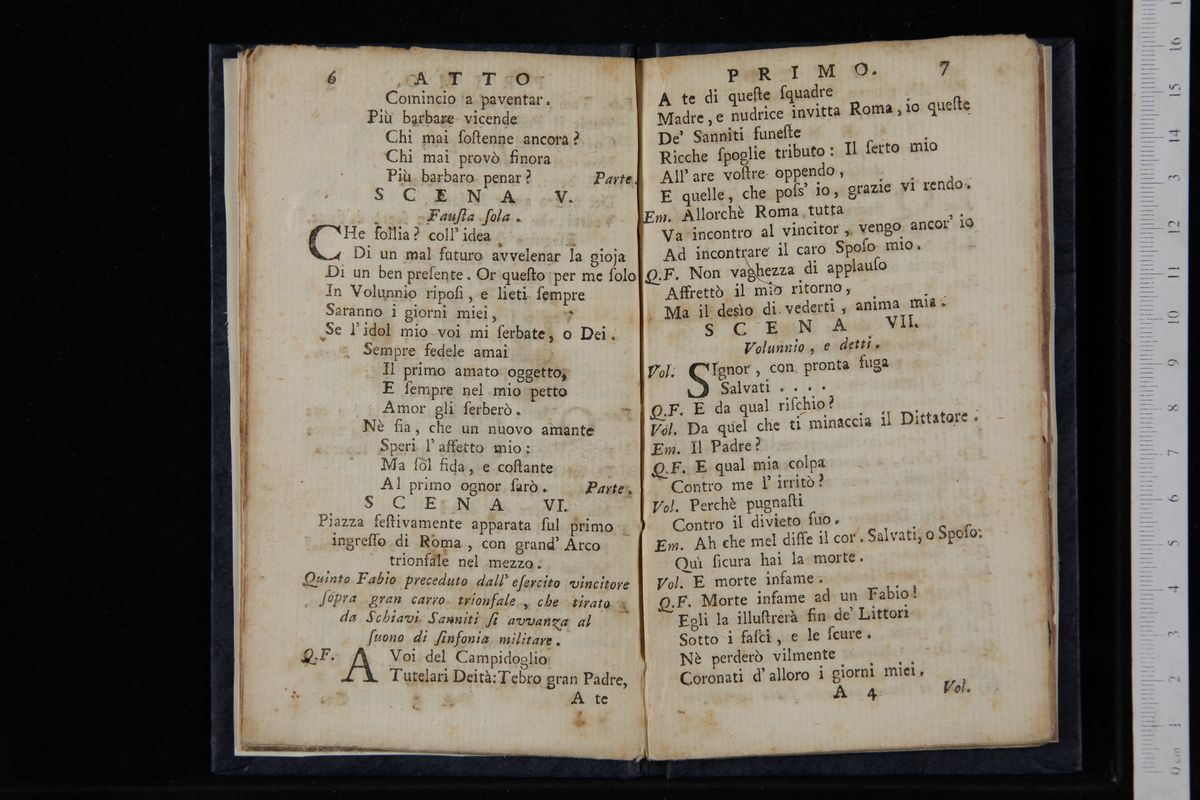 6 ATTO
Comincio a paventar.
Più barbare vicende
Chi mai ſoſtenne ancora?
Chi mai provò finora
Più barbaro penar? Parte.
SCENA V.
Fauſta ſola.
CHe follia? coll' idea
Di un mal futuro avvelenar la gioja
Di un ben preſente. Or queſto per me ſolo
In Volunnio ripoſi, e lieti ſempre
Saranno i giorni miei,
Se l' idol mio voi mi ſerbate, o Dei.
Sempre fedele amai
Il primo amato oggetto,
E ſempre nel mio petto
Amor gli ſerberò.
Nè fia, che un nuovo amante
Speri l' affetto mio:
Ma ſol fida, e coſtante
Al primo ognor ſarò. Parte.
SCENA VI.
Piazza feſtivamente apparata ſul primo
ingreſſo di Roma, con grand' Arco
trionfale nel mezzo.
Quinto Fabio preceduto dall' eſercito vincitore
ſopra gran carro trionfale, che tirato
da Schiavi Sanniti ſi avvanza al
ſuono di ſinfonia militare.
Q.F. A Voi del Campidoglio
Tutelari Deità: Tebro gran Padre,
A te
PRIMO. 7
A te di queſte ſquadre
Madre, e nudrice invitta Roma, io queſte
De' Sanniti funeſte
Ricche ſpoglie tributo: Il ſerto mio
All' are voſtre oppendo,
E quelle, che poſs' io, grazie vi rendo.
Em. Allorchè Roma tutta
Va incontro al vincitor, vengo ancor' io
Ad incontrare il caro Spoſo mio.
Q.F. Non vaghezza di applauſo
Affrettò il mio ritorno,
Ma il desìo di vederti, anima mia.
SCENA VII.
Volunnio, e detti.
Vol. SIgnor, con pronta fuga
Salvati ....
Q.F. E da qual riſchio?
Vol. Da quel che ti minaccia il Dittatore.
Em. Il Padre?
Q.F. E qual mia colpa
Contro me l' irritò?
Vol. Perchè pugnaſti
Contro il divieto ſuo.
Em. Ah che mel diſſe il cor. Salvati, o Spoſo:
Quì ſicura hai la morte.
Vol. E morte infame.
Q.F. Morte infame ad un Fabio!
Egli la illuſtrerà fin de' Littori
Sotto i faſci, e le ſcure.
Nè perderò vilmente
Coronati d' alloro i giorni miei.
A 4 Vol.
0 cm 1 2 3 4 5 6 7 8 9 10 11 12 13 14 15 16